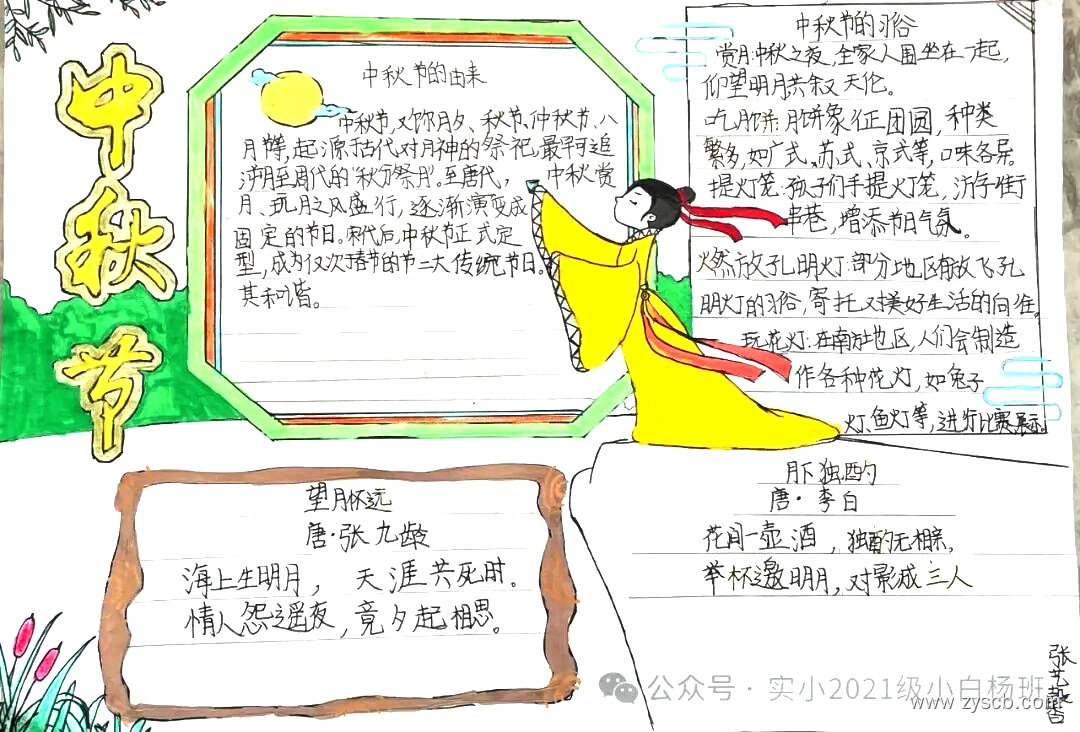 中秋节
中秋节的由来
中秋节,又称月夕、秋节、仲秋节、八
月节等,起源于古代对月神的祭祀,最早可追
溯月至周代的“秋分祭月”。至唐代,中秋赏
月、玩月之风盛行,逐渐演变成
固定的节日。宋代后,中秋节正式定
型,成为仅次于春节的节二大传统节日。
其和谐。
中秋节的习俗
赏月:中秋之夜,全家人围坐在一起,
仰望明月共叙天伦。
吃月饼:月饼象征团圆,种类
繁多,如广式、苏式、京式等,口味各异。
提灯笼:孩子们手提灯笼,游字街
串巷,增添节日气氛。
燃放孔明灯:部分地区有放飞孔
明灯的习俗,寄托对美好生活的向往。
玩花灯:在南方地区,人们会制造
作各种花灯,如兔子
灯、鱼灯等,进行比赛展示
望月怀远
唐·张九龄
海上生明月,天涯共死时。
情人怨遥夜,竟夕起相思。
月下独酌
唐·李白
花间一壶酒,独酌无相亲。
举杯邀明月,对影成三人
张艺
公众号·实小2021级小白杨班
www.zyscb.com